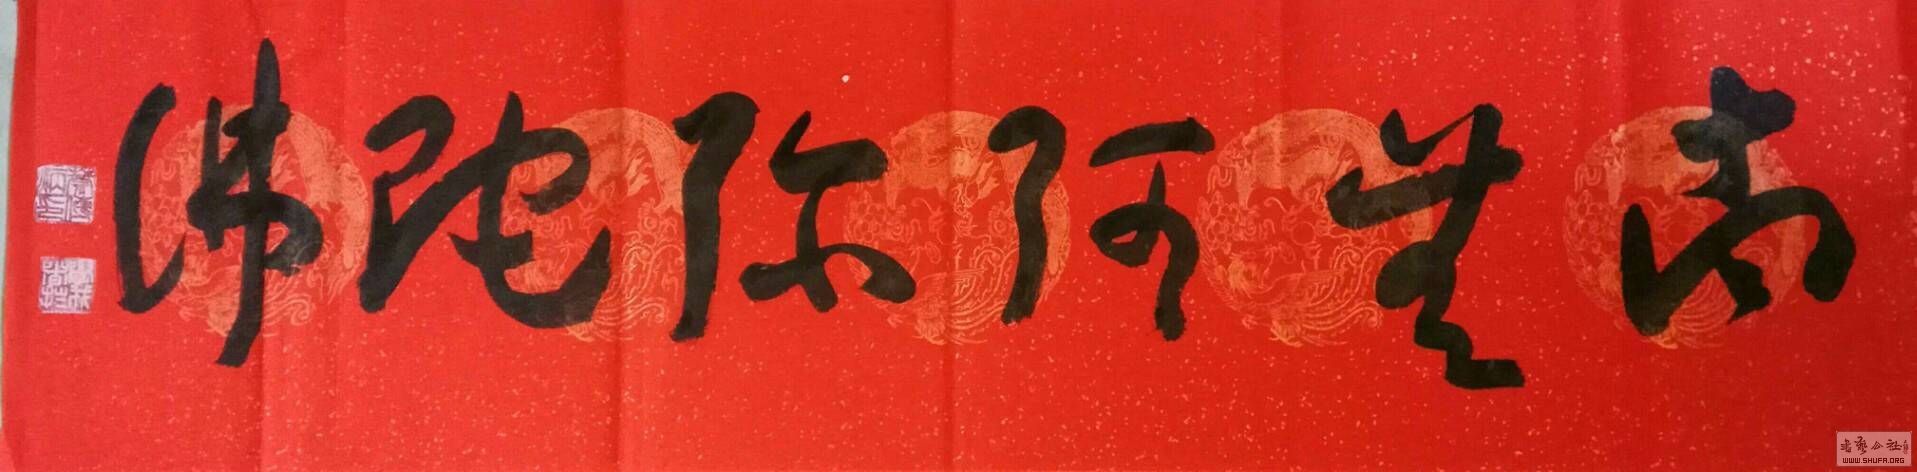 南無阿弥陀佛
书艺公社
WWW.SHUFA.ORG